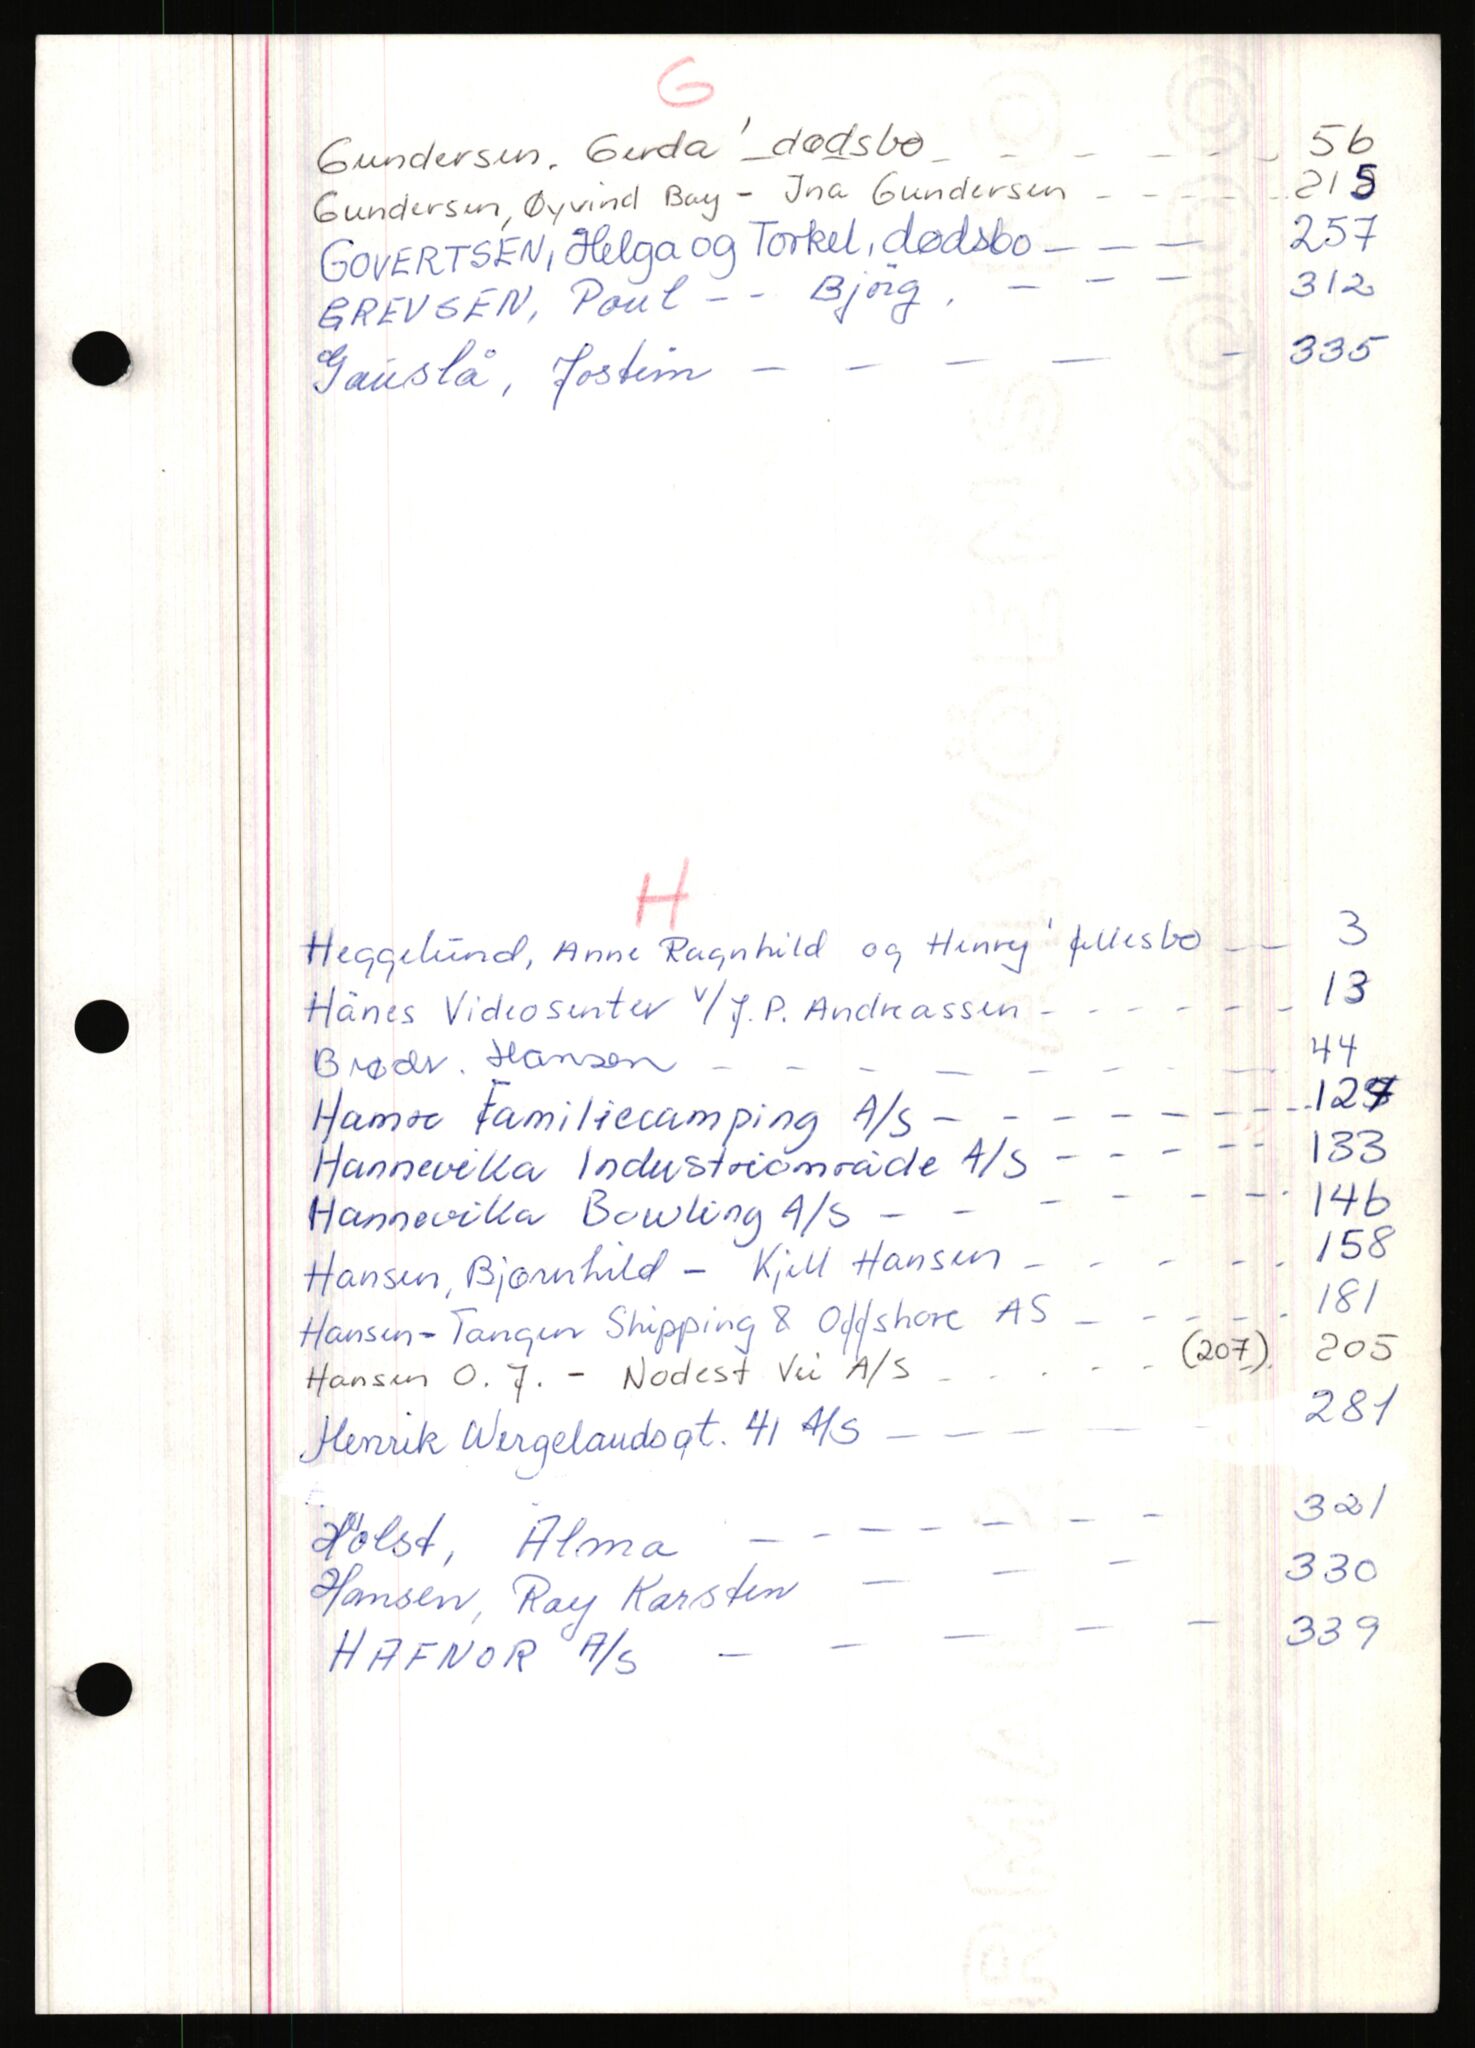 G
Gundersen, Gerda' dødsbo - - - - - - - 56
Gundersen, Øyvind Bay - Ina Gundersen - - - - - 215
GOVERTSEN, Helga og Torkel, dødsbo - - - - 257
GREVSEN, Poul - - Björg, - - - 312
Gauslå, Jostein - - - - - 335
H
Heggelund, Anne Ragnhild og Henry' fellesbo - - 3
Hånes Videosenter v/ J. P. Andreassen - - - - - - 13
Brødr. Hansen - - - - - - - - 44
Hamre Familiecamping A/S - - - - - - - - 127
Hannevika Industriområde A/S - - - - - 133
Hannevika Bowling A/S - - - - - - 146
Hansen, Bjørnhild - Kjell Hansen - - - - - 158
Hansen-Tangen Shipping & Offshore AS - - - - - 181
Hansen O. J. - Nodest Vei A/S - - - - - (207) 205
Henrik Wergelandsgt. 41 A/S - - - - - 281
Holst, Alma - - - - - - - 321
Hansen, Ray Karsten - - - 330
HAFNOR A/S - - - - - 339